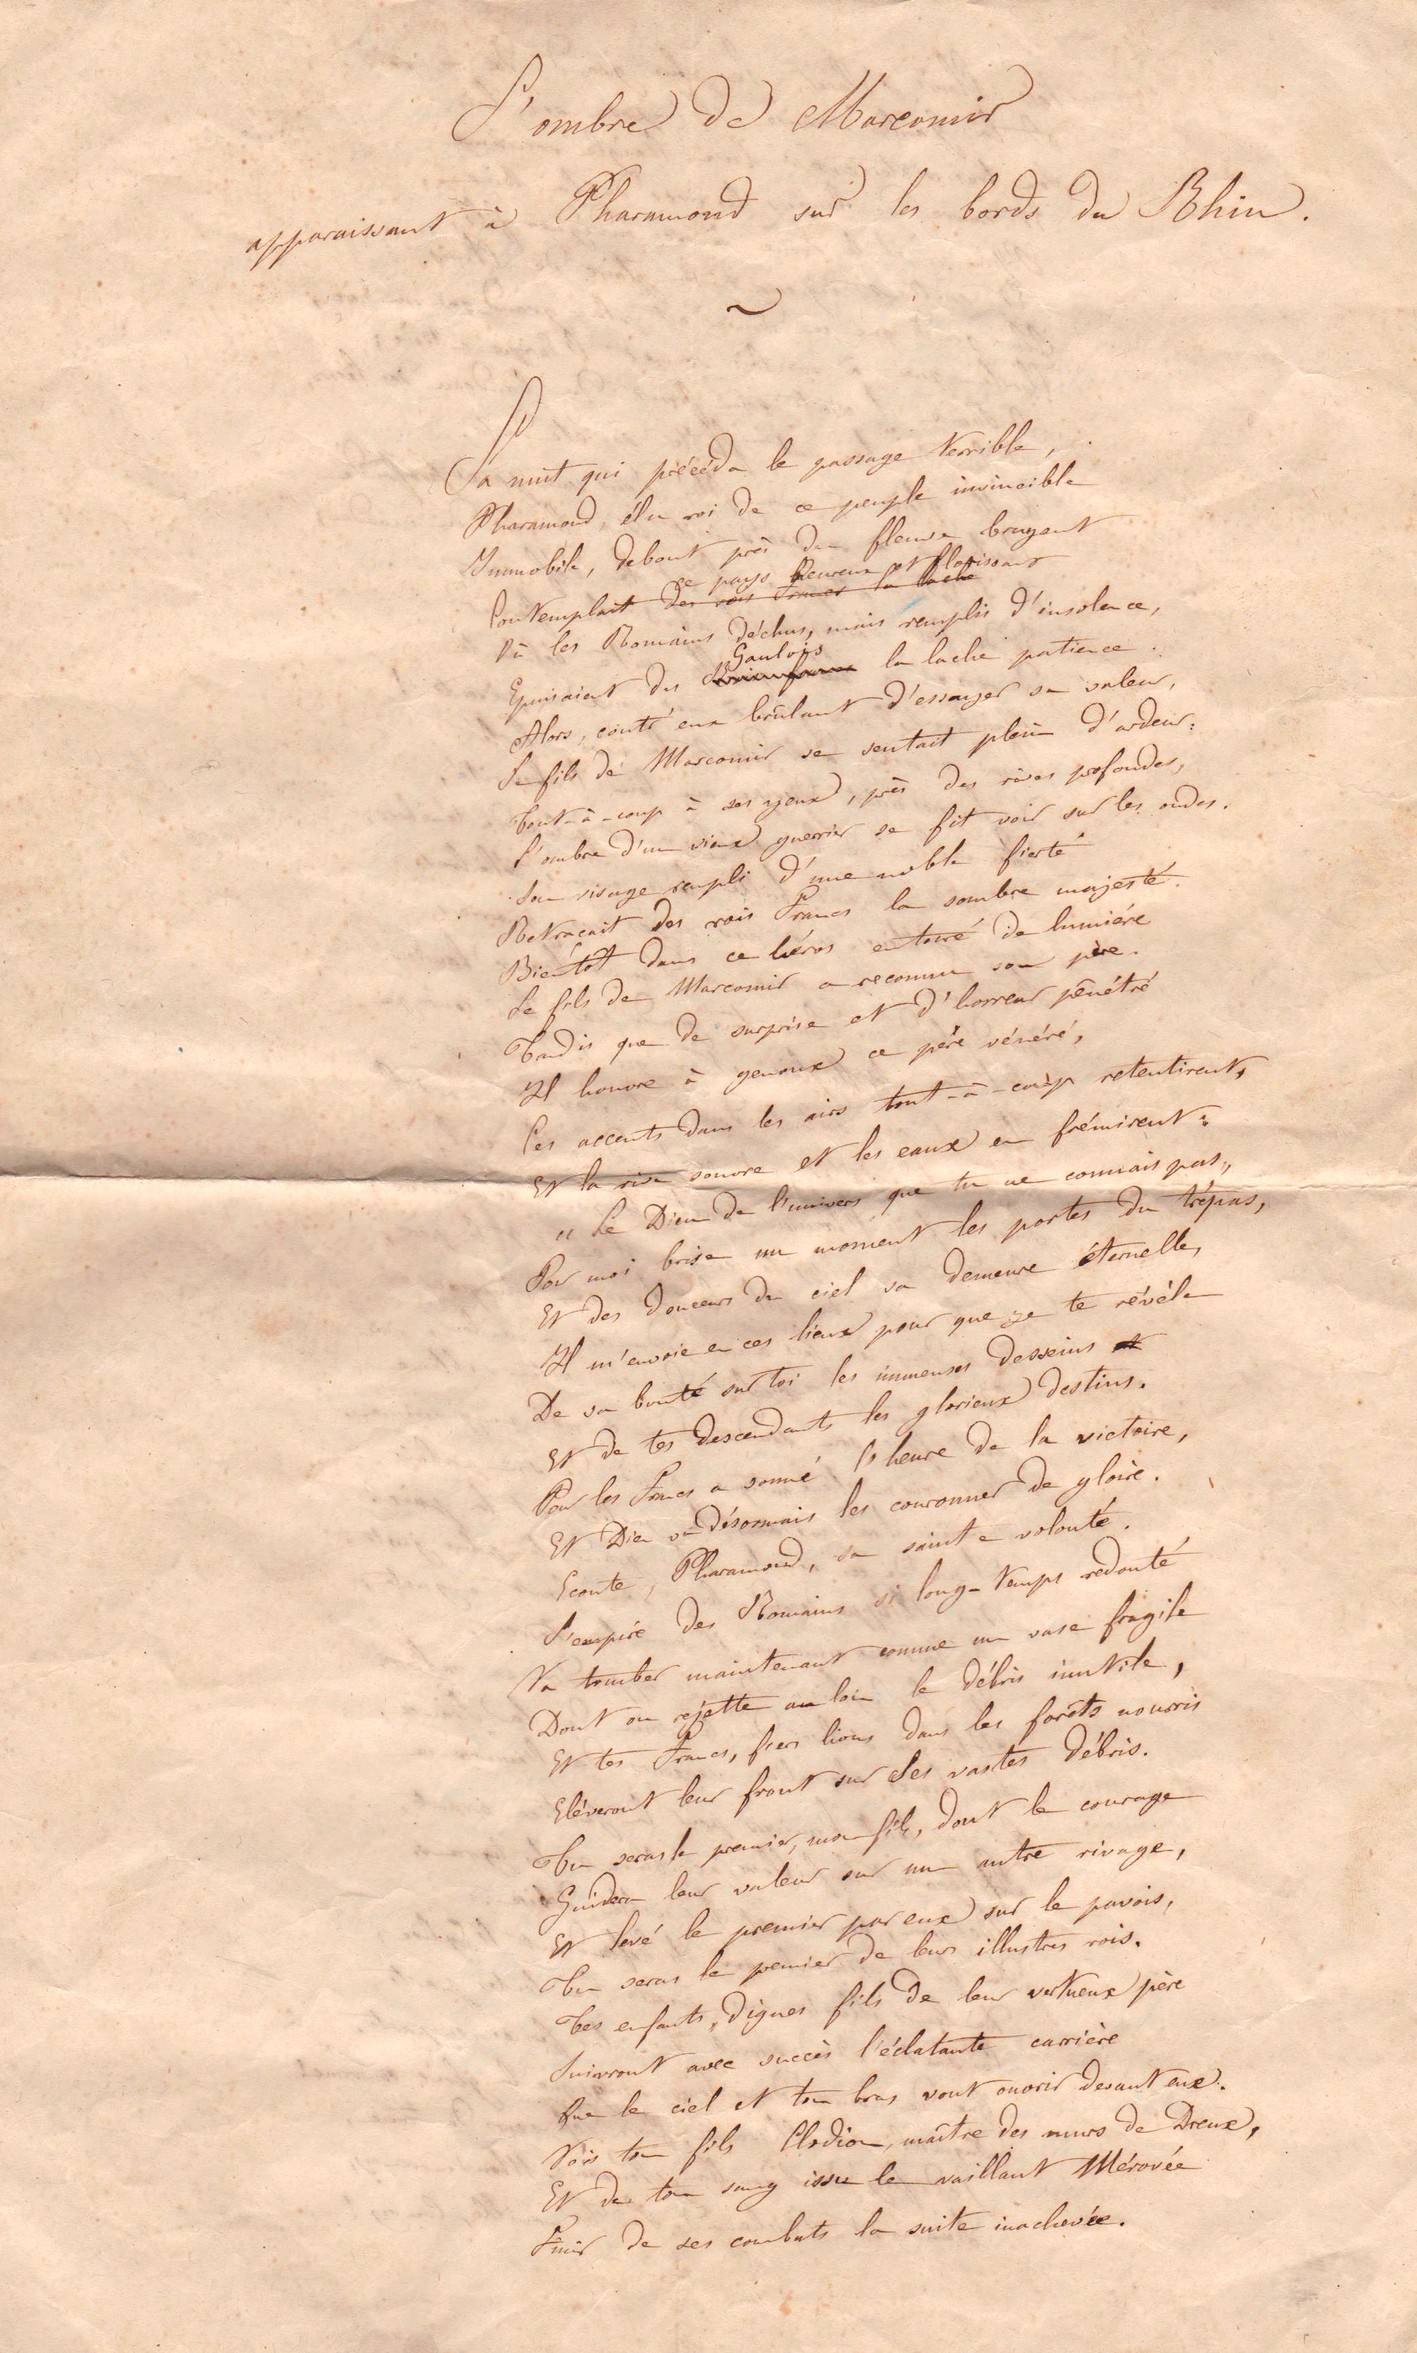 L'ombre de Marcomir
apparaissant à Pharamond sur les bords du Rhin.
~
La nuit qui précéda le passage terrible,
Pharamond, élu roi de ce peuple invincible
Immobile, debout près du fleuve bruyant
ce pays heureux et florissant
Contemplait des rois Francs la lache
Où les Romains déchus, mais remplis d'insolence,
Gaulois
Epuisaient des la lache patience.
Alors, contr'eux brûlant d'essayer sa valeur,
Le fils de Marcomir se sentait plein d'ardeur:
Tout-à-coup à ses yeux, près des rives profondes,
L'ombre d'un vieux guerrier se fit voir sur les ondes.
Son visage rempli d'une noble fierté
Retraçait des rois Francs la sombre majesté.
Bientôt dans ce héros entouré de lumiére
Le fils de Marcomir a reconnu son père.
Tandis que de surprise et d'horreur pénétré
Il honore à genoux ce père vénéré,
Ces accents dans les airs tout-à-coup retentirent,
Et la rive sonore et les eaux en frémirent:
"Le Dieu de l'univers que tu ne connais pas,
Pour moi brise un moment les portes du trépas,
Et des douceurs du ciel sa demeure éternelle,
Il m'envoie en ces lieux pour que je te révéle
De sa bonté sur toi les immenses desseins et
Et de tes descendants les glorieux destins.
Pour les Francs a sonné l'heure de la victoire,
Et Dieu va désormais les couronner de gloire.
Ecoute, Pharamond, sa sainte volonté.
L'empire des Romains si long-temps redouté
Va tomber maintenant comme un vase fragile
Dont on rejette au loin le débris inutile,
Et tes Francs, fiers lions dans les forêts nourris
Eléveront leur front sur ses vastes débris.
Tu seras le premier, mon fils, dont le courage
Guidera leur valeur sur un autre rivage,
Et levé le premier par eux sur le pavois,
Tu seras le premier de leurs illustres rois.
Tes enfants, dignes fils de leur vertueux père
Suivront avec succès l'éclatante carrière
Que le ciel et ton bras vont ouvrir devant eux.
Vois ton fils Clodion, maître des murs de Dreux,
Et de ton sang issu le vaillant Mérovée
Finir de ses combats la suite inachevée.